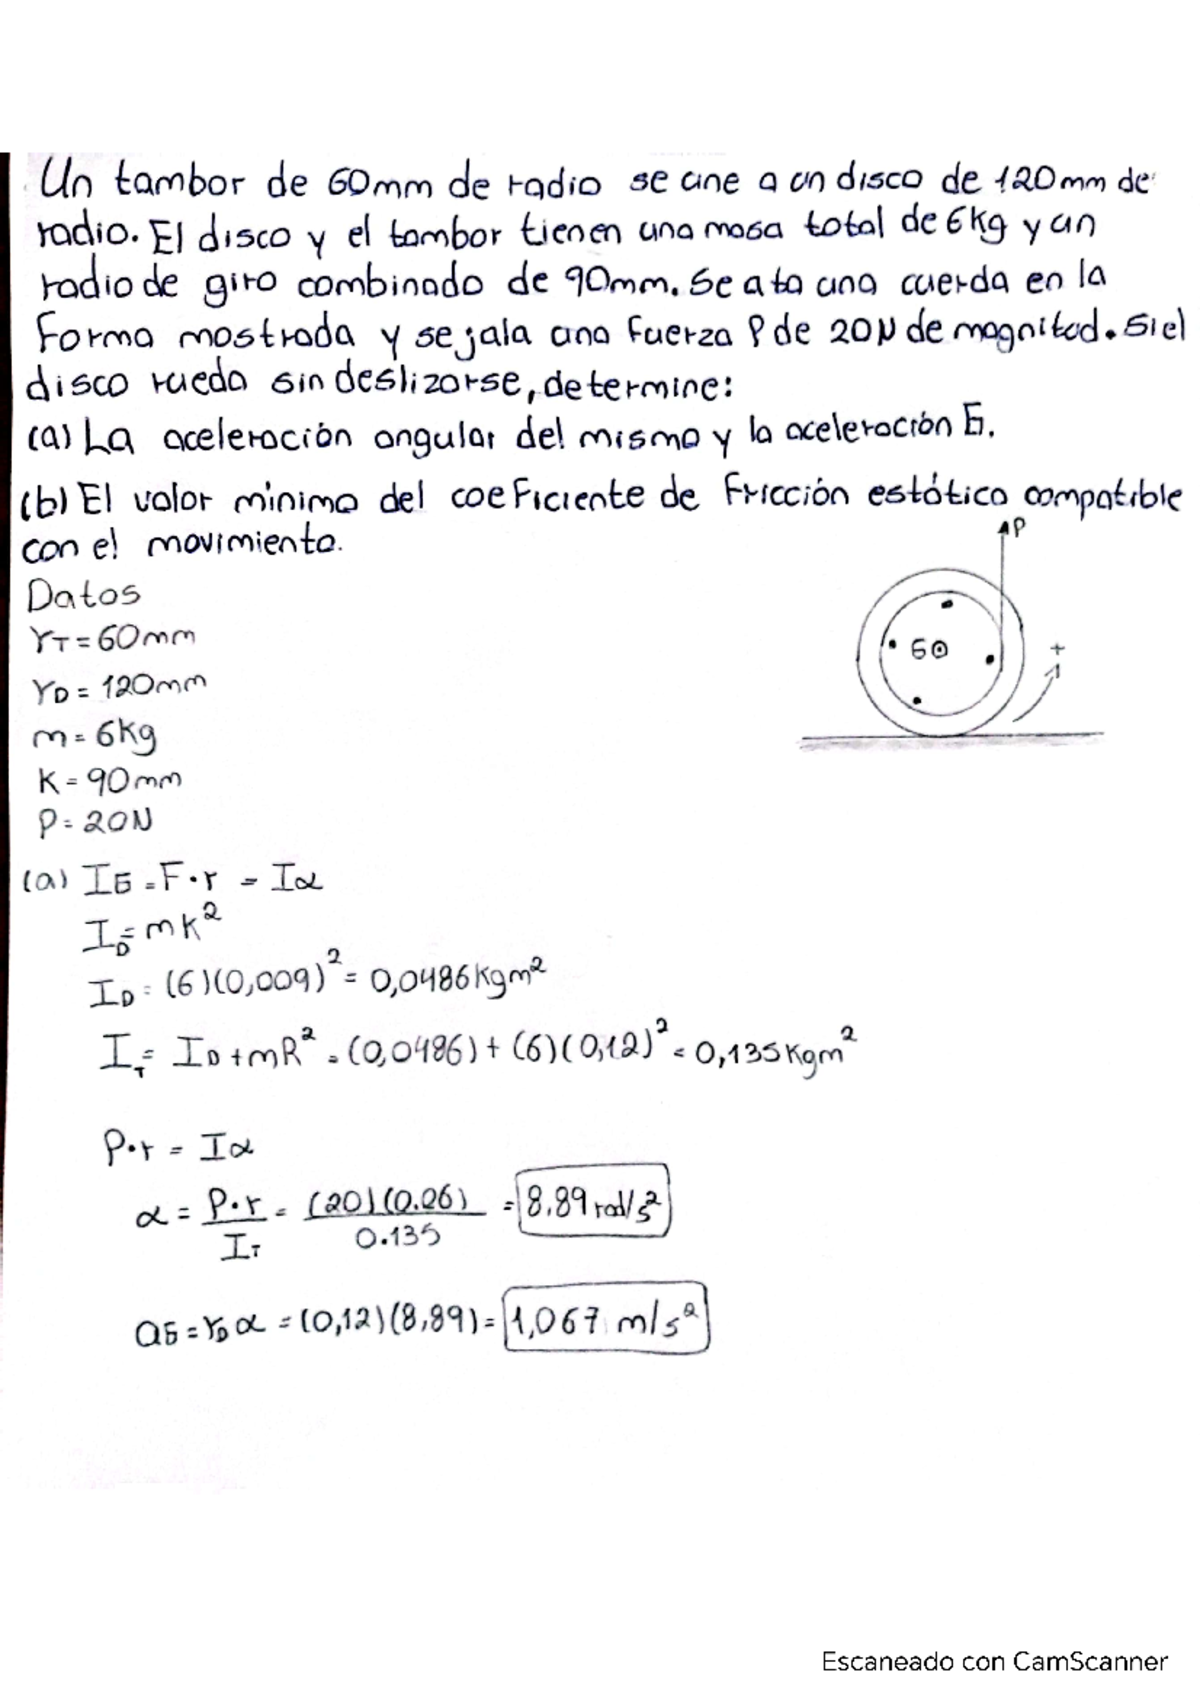 Un tambor de 60mm de radio se une a un disco de 120mm de
radio. El disco y el tambor tienen una masa total de 6kg y un
radio de giro combinado de 90mm. Se ata una cuerda en la
Forma mostrada y se jala una Fuerza P de 20N de magnitud. Si el
disco rueda sin deslizarse, determine:
(a) La aceleración angular del mismo y la aceleración G.
(b) El valor mínimo del coeficiente de Fricción estático compatible
con el movimiento.
P
Datos
rT = 60mm
G
+
rD = 120mm
m = 6kg
K = 90mm
P = 20N
(a) IG = F·r = Iα
ID = mk²
ID = (6)(0,009)² = 0,0486kgm²
IT = ID + mR² = (0,0486) + (6)(0,12)² = 0,135Kgm²
P·r = Iα
α = P·r / IT = (20)(0.06) / 0.135 = 8.89 rad/s²
aG = rDα = (0,12)(8,89) = 1,067 m/s²
Escaneado con CamScanner